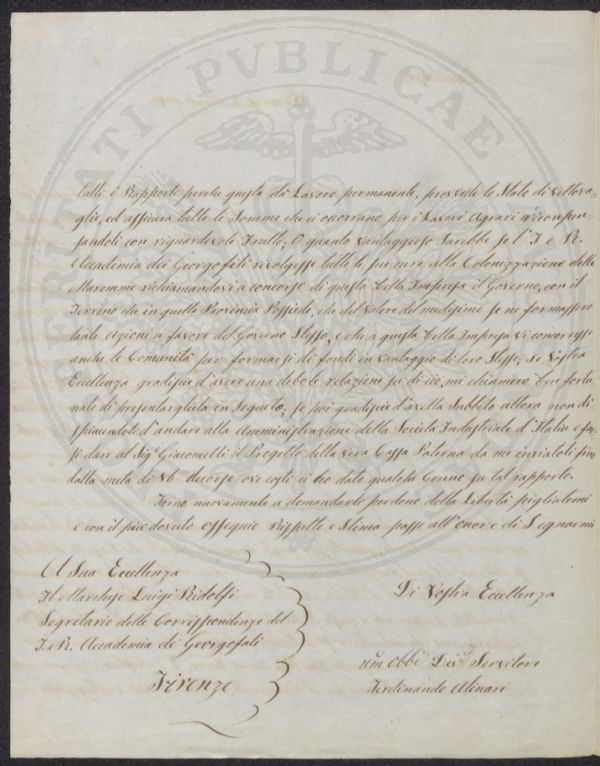 PROSPERITATI PVBLICAE
tutti i Rapporti perche questa dà Lavoro permanente, provvede lo Stato di vettova-
glie, ed assicura tutte le Somme che ci occorrano per i Lavori Agrari
con riguardevoli Frutti; O quanto vantaggioso Sarebbe se l'I e R.
Accademia dei Georgofili rivolgesse tutte le sue cure alla Colonizzazione delle
Maremme richiamandovi a concorso di questa bella Impresa il Governo, con il
Terreno che in quella Provincia Possiede, che del valore del medesimo se ne formassero
tante Azioni a favore del Governo Stesso, e che a questa bella Impresa vi concorresse
anche le Comunità per formarsi di fondi in vantaggio di loro Stesse; Se Vostra
Eccellenza gradisce d'avere una debole relazione su di ciò, mi chiamerò ben fortu-
nato di presentargliela in Seguito; Se poi gradisce d'averla Subbito allora non di
spiacendoli d'andare alla Amministrazione della Società Industriale d'Italia e fa-
si dare al Sigr Giacometti il Progetto della vera Cassa Paterna da me inviatoli fino
dalla metà di decorso ove costì ci ho dato qualche Cenno su tal rapporto.
Torno nuovamente a domandarli perdono della Libertà pigliatemi
e con il più dovuto ossequio Rispetto e Stima passo all'onore di Segnarmi
A Sua Eccellenza
Il Marchese Luigi Ridolfi
Segretario delle Corrispondenze del
I. e R. Accademia di Georgofili
Firenze
Di Vostra Eccellenza
um Obbo Devo Servitore
Ferdinando Alinari